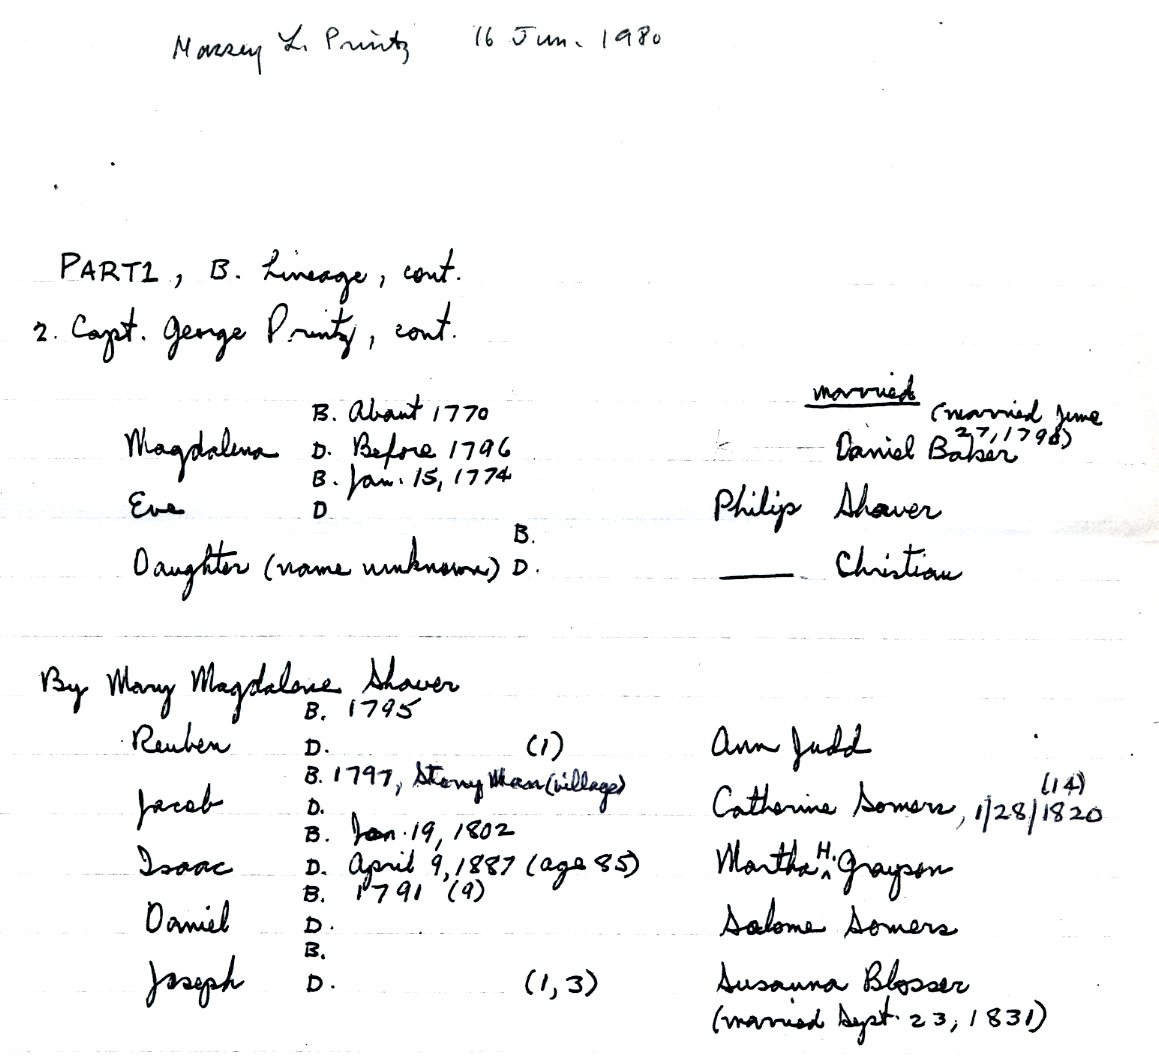 Massey L. Printz 16 Jun. 1980
PART1, B. Lineage, cont.
2. Capt. George Printz, cont.
married
B. About 1770 (married June
Magdalena D. Before 1796 Daniel Baker 27, 1798)
B. Jan. 15, 1774
Eve D Philip Shaver
B.
Daughter (name unknown) D. ____ Christian
By Mary Magdalene Shaver
B. 1795
Reuben D. (1) Ann Judd
B. 1797, Stony Man (village) (14)
Jacob D. Catherine Somers, 1/28/1820
B. Jan. 19, 1802
Isaac D. April 9, 1887 (age 85) Martha H. Grayson
B. 1791 (9)
Daniel D. Salome Somers
B.
Joseph D. (1, 3) Susanna Blosser
(married Sept. 23, 1831)